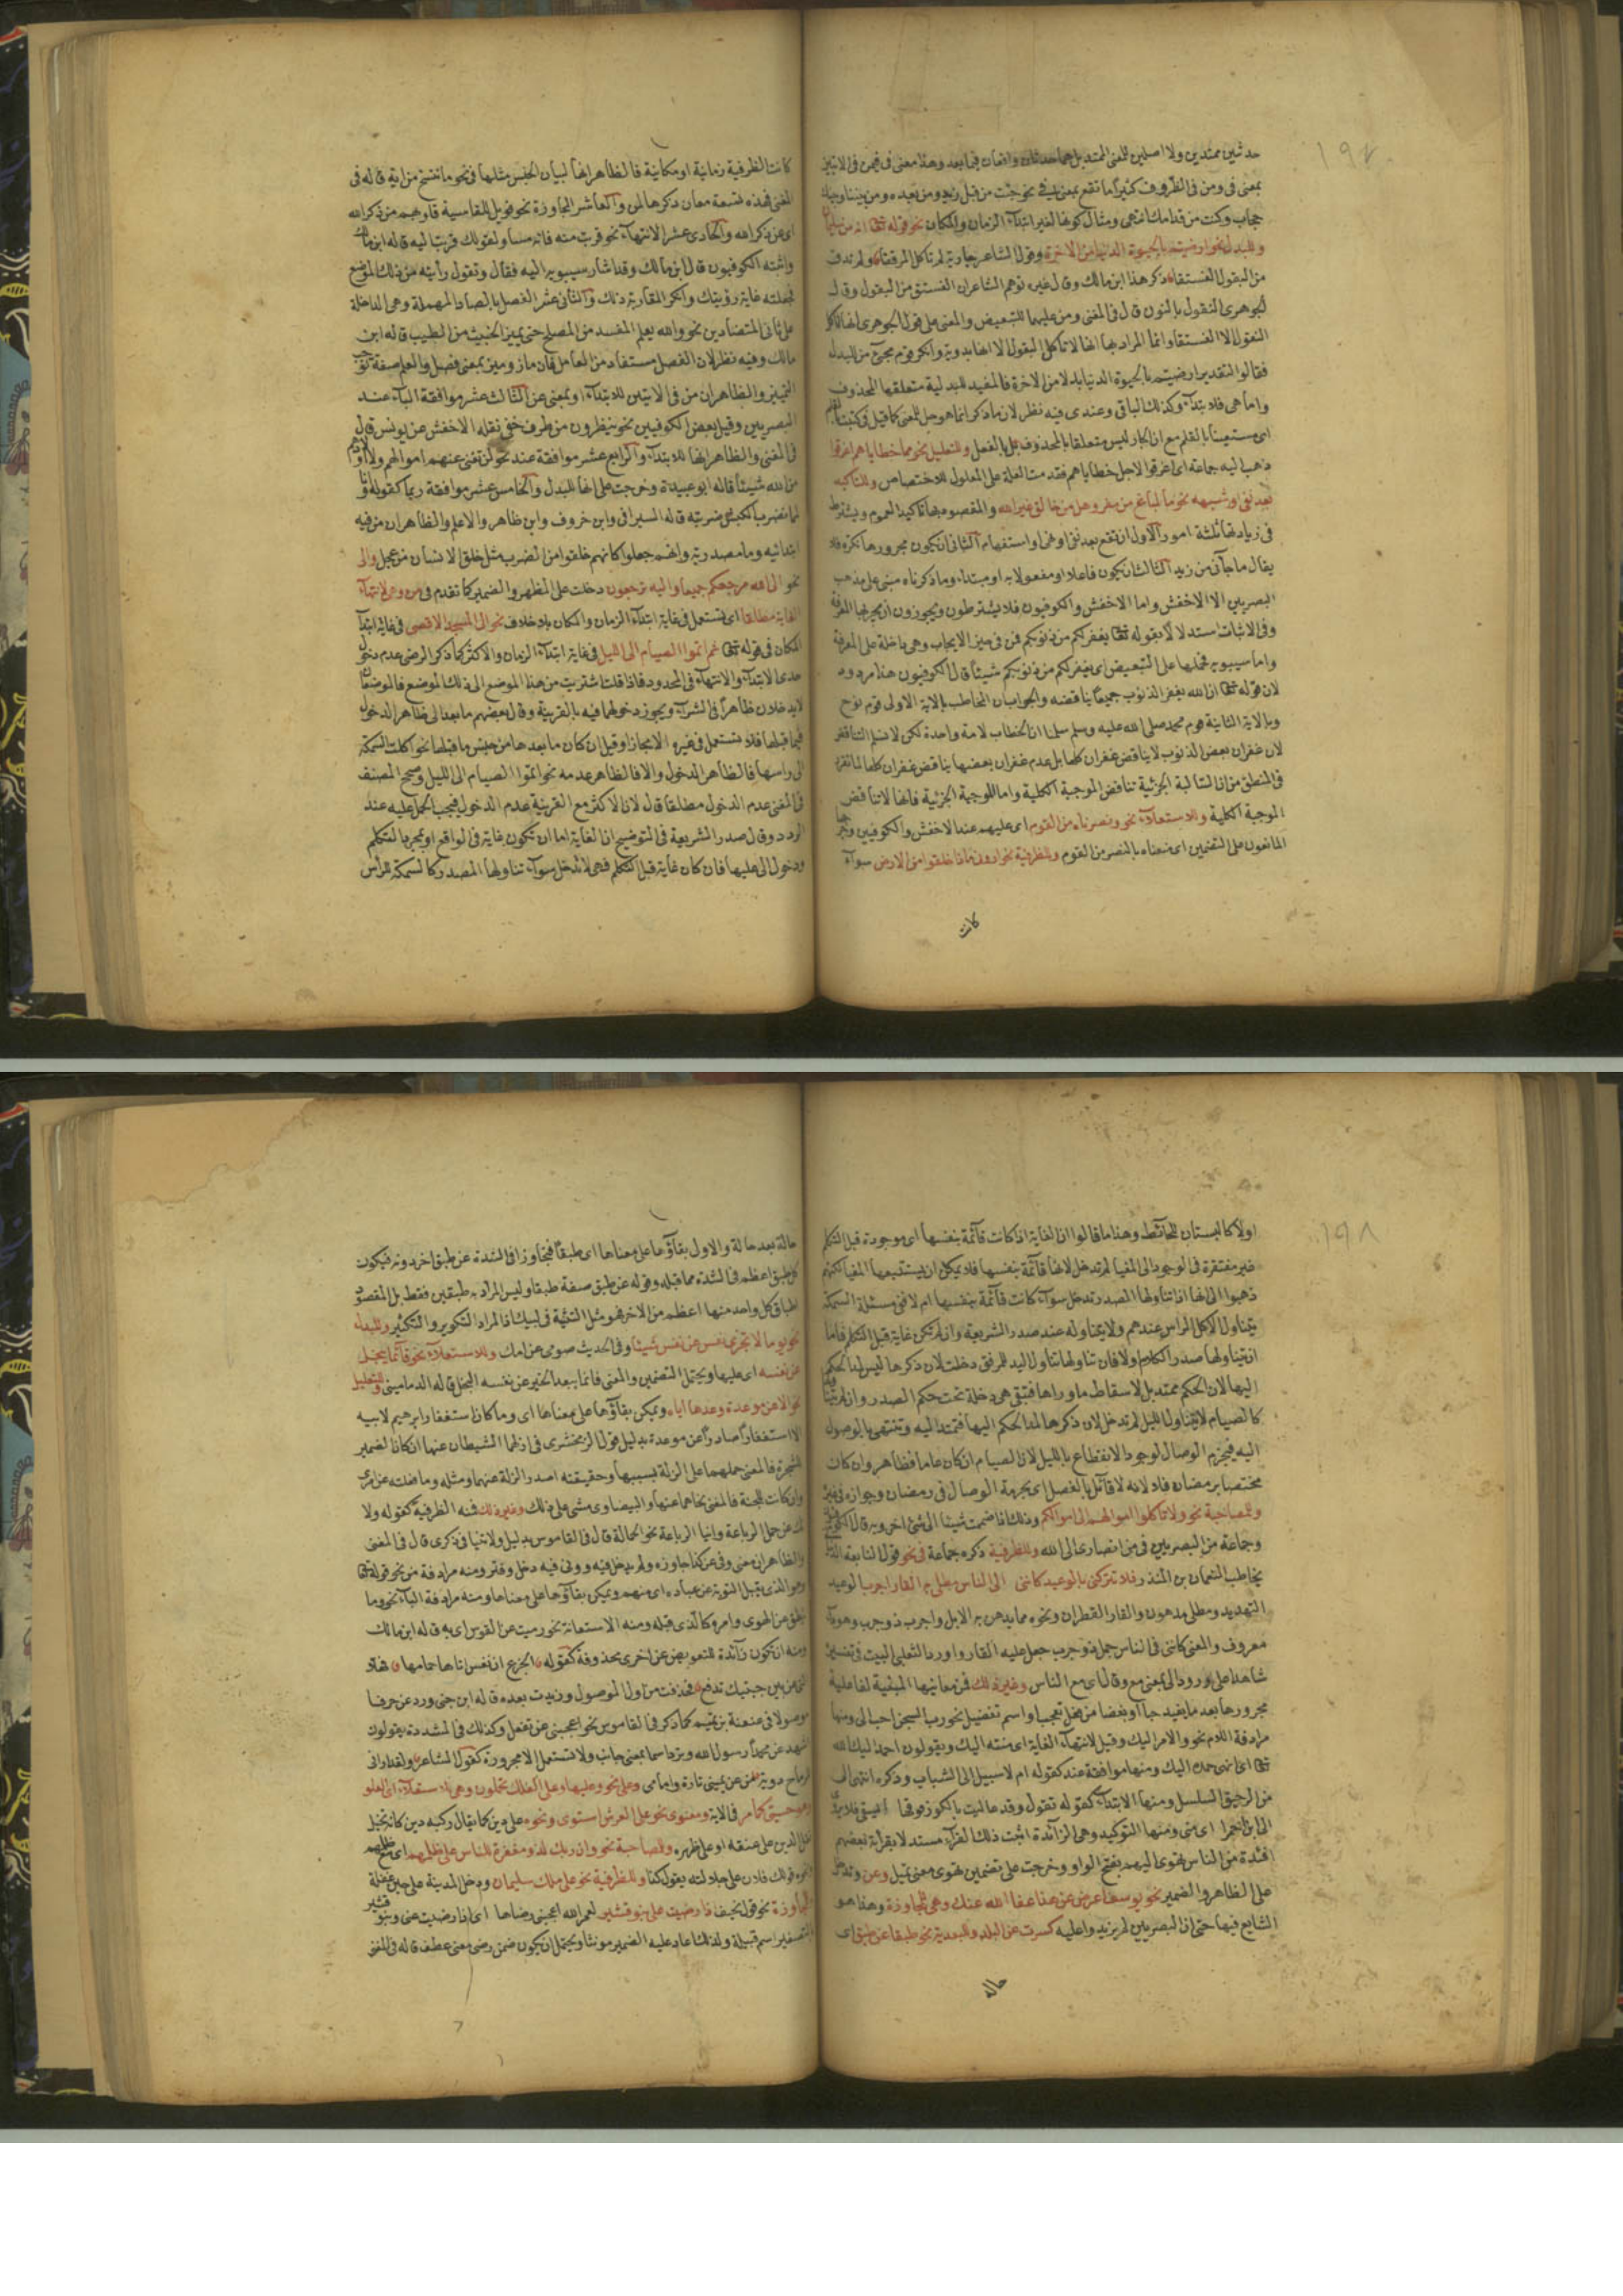 ١٩٧
حدثين ممتدين ولا اصلين للمعنى الممتد بل هما حدثان واقعان فيما بعد وهذا معنى فى فمن فى الايتين
بمعنى فى ومن فى الظروف كثيرا ما تقع بمعنى فى نحو جئت من قبل زيد ومن بعده ومن بيننا وبينك
حجاب وكنت من قدامك انتهى ومثال كونها لغير ابتداء الزمان والمكان نحو قوله تعالى انه من سليمان
وللبدل نحو ارضيتم بالحيوة الدنيا من الاخرة وقول الشاعر جارية لم تاكل المرققا ولم تذق
من البقول الفستقا ذكر هذا ابن مالك وقال غيره توهم الشاعر ان الفستق من البقول وقال
الجوهرى النقول بالنون قال فى المغنى ومن عليهما للتبعيض والمعنى على قول الجوهرى انها تاكل
النقول الا الفستق وانما المراد بها انها لا تاكل البقول لانها بدوية وانكر قوم مجئ من للبدل
فقالوا التقدير ارضيتم بالحيوة الدنيا بدلا من الاخرة فالمفيد للبدلية متعلقها المحذوف
واما هى فلابتداء وكذلك الباقى وعندى فيه نظر لان ما ذكر انما هو حل للمعنى كما قيل فى كتبت بالقلم
اى مستعينا بالقلم مع ان الجار ليس متعلقا بالمحذوف بل بالفعل وللتعليل نحو مما خطاياهم اغرقوا
ذهب اليه جماعة اى اغرقوا لاجل خطاياهم فقدمت العلة على المعلول للاختصاص وللتاكيد
بعد نفى او شبهه نحو ما لباغ من مفر وهل من خالق غير الله والمقصود بها تاكيد العموم ويشترط
فى زيادتها ثلثة امور الاول ان تقع بعد نفى او نهى او استفهام الثانى ان يكون مجرورها نكرة فلا
يقال ما جآنى من زيد الثالث ان يكون فاعلا او مفعولا به او مبتداء وما ذكرناه مبنى على مذهب
البصريين الا الاخفش واما الاخفش والكوفيون فلا يشترطون ويجوزون ان يجر بها المعرفة
وفى الاثبات استدلالا بقوله تعالى يغفر لكم من ذنوبكم فمن فى حيز الايجاب وهى داخلة على المعرفة
واما سيبويه فحملها على التبعيض اى يغفر لكم من ذنوبكم شيئا قال الكوفيون هذا مردود
لان قوله تعالى ان الله يغفر الذنوب جميعا يناقضه والجواب ان المخاطب بالاية الاولى قوم نوح
وبالاية الثانية قوم محمد صلى الله عليه وسلم سلمنا ان الخطاب لامة واحدة لكن لا نسلم التناقض
لان غفران بعض الذنوب لا يناقض غفران كلها بل عدم غفران بعضها يناقض غفران كلها لما تقرر
فى المنطق من ان السالبة الجزئية تناقض الموجبة الكلية واما الموجبة الجزئية فانها لا تناقض
الموجبة الكلية وللاستعلاء نحو ونصرناه من القوم اى عليهم عند الاخفش والكوفيين
المانعون على التضمين اى منعناه بالنصر من القوم وللظرفية نحو ارونى ماذا خلقوا من الارض سوآء
كانت
كانت الظرفية زمانية او مكانية فالظاهر انها لبيان الجنس مثلها فى نحو ما ننسخ من اية قاله فى
المغنى فهذه تسعة معان ذكرها لمن والعاشر المجاوزة نحو فويل للقاسية قلوبهم من ذكر الله
اى عن ذكر الله والحادى عشر الانتهاء نحو قربت منه فانه مساو لقولك قربت اليه قاله ابن مالك
واثبته الكوفيون قال ابن مالك وقد اشار سيبويه اليه فقال وتقول رأيته من ذلك الموضع
فجعلته غاية رؤيتك وانكر المقاربة ذلك والثانى عشر الفصل بالصاد المهملة وهى الداخلة
على ثانى المتضادين نحو والله يعلم المفسد من المصلح حتى يميز الخبيث من الطيب قاله ابن
مالك وفيه نظر لان الفصل مستفاد من العامل فان ماز وميز بمعنى فصل والعلم صفة توجب
التمييز والظاهر ان من فى الايتين للابتداء او بمعنى عن الثالث عشر موافقة البآء عند
البصريين وقيل بعض الكوفيين نحو ينظرون من طرف خفى نقله الاخفش عن يونس قال
فى المغنى والظاهر انها للابتداء والرابع عشر موافقة عند نحو لن تغنى عنهم اموالهم ولا اولادهم
من الله شيئا قاله ابو عبيدة وخرجت على انها للبدل والخامس عشر موافقة ربما كقوله وانا
لما نضرب الكبش ضربة قاله السيرافى وابن خروف وابن طاهر والاعلم والظاهر ان من فيه
ابتدائية وما مصدرية وانهم جعلوا كانهم خلقوا من الضرب مثل خلق الانسان من عجل والى
نحو الى الله مرجعكم جميعا واليه ترجعون دخلت على المظهر والضمير كما تقدم فى من وهى لانتهاء
الغاية مطلقا اى تستعمل فى غاية ابتداء الزمان والمكان بلا خلاف نحو الى المسجد الاقصى فى غاية ابتداء
المكان فى قوله تعالى ثم اتموا الصيام الى الليل فى غاية ابتداء الزمان والاكثر كما ذكر الرضى عدم دخول
حدى الابتداء والانتهاء فى المحدود فاذا قلت اشتريت من هذا الموضع الى ذلك الموضع فالموضعان
لا يدخلان ظاهرا فى الشراء ويجوز دخولهما فيه بالقرينة وقال بعضهم ما بعد الى ظاهر الدخول
فيما قبلها فلا تستعمل فى غيره الا مجازا وقيل ان كان ما بعدها من جنس ما قبلها نحو اكلت السمكة
الى راسها فالظاهر الدخول والا فالظاهر عدمه نحو اتموا الصيام الى الليل وصحح المصنف
فى المغنى عدم الدخول مطلقا قال لان الاكثر مع القرينة عدم الدخول فيجب الحمل عليه عند
التردد وقال صدر الشريعة فى التوضيح ان الغاية اما ان تكون غاية فى الواقع او بمجرد التكلم
ودخول الى عليها فان كان غاية قبل التكلم فهى لا تدخل سوآء تناولها المصدر كالسمكة للرأس
١٩٨
اولا كالبستان للحائط وهذا ما قالوا ان الغاية اذا كانت قآئمة بنفسها اى موجودة قبل التكلم
غير مفتقرة فى الوجود الى المغيا لم تدخل لانها قآئمة بنفسها فلا يمكن ان يستتبعها المغيا لكنهم
ذهبوا الى انها اذا تناولها المصدر تدخل سوآء كانت قآئمة بنفسها ام لا ففى مسئلة السمكة
يتناول الاكل الراس عندهم ولا يتناوله عند صدر الشريعة وان لم تكن غاية قبل التكلم فاما
ان يتناولها صدر الكلام او لا فان تناولها تناول اليد للمرفق دخلت لان ذكرها ليس لمد الحكم
اليها لان الحكم ممتد بل لاسقاط ما وراها فتبقى هى داخلة تحت حكم الصدر وان لم يتناولها
كالصيام لا يتناول الليل لم تدخل لان ذكرها لمد الحكم اليها فتمتد اليه وتنتهى بالوصول
اليه فيحرم الوصال لوجود الانقطاع بالليل لان الصيام ان كان عاما فظاهر وان كان
مختصا برمضان فلا لانه لا قآئل بالفصل اى بحرمة الوصال فى رمضان وجوازه فى غيره
وللمصاحبة نحو ولا تاكلوا اموالهم الى اموالكم وذلك اذا ضممت شيئا الى شئ اخر وبه قال الكوفيون
وجماعة من البصريين فى من انصارى الى الله وللظرفية ذكره جماعة فى نحو قول النابغة
يخاطب النعمان بن المنذر فلا تتركنى بالوعيد كاننى الى الناس مطلى به القار اجرب الوعيد
التهديد ومطلى مدهون والقار القطران ونحوه مما يدهن به الابل واجرب ذو جرب وهو
معروف والمعنى كاننى فى الناس جمل ذو جرب جعل عليه القار واورد الثعلبى البيت فى تفسيره
شاهدا على ورود الى بمعنى مع وقال اى مع الناس وغير ذلك فمن معانيها المبينة لفاعلية
مجرورها بعد ما يفيد حبا او بغضا من فعل تعجب او اسم تفضيل نحو رب السجن احب الى ومنها
مرادفة اللام نحو والامر اليك وقيل لانتهاء الغاية اى منته اليك ويقولون احمد اليك الله
تعالى اى انهى حمده اليك ومنها موافقة عند كقوله ام لا سبيل الى الشباب وذكره اشهى الى
من الرحيق السلسل ومنها الابتداء كقوله تقول وقد عاليت بالكور فوقها ايسقى فلا يروى
الى ابن احمرا اى منى ومنها التوكيد وهى الزآئدة اثبت ذلك الفرآء مستدلا بقرآءة بعضهم
افئدة من الناس تهوى اليهم بفتح الواو وخرجت على تضمين تهوى معنى تميل وعن وتدخل
على الظاهر والضمير نحو يوسف اعرض عن هذا عفا الله عنك وهى للمجاوزة وهذا هو
الشايع فيها حتى ان البصريين لم يزيدوا عليه كسرت عن البلد وللبعدية نحو طبقا عن طبق اى
حالة
حالة بعد حالة والاول بقاؤها على معناها اى طبقا متجاوزا فى الشدة عن طبق اخر دونه فيكون
كل طبق اعظم فى الشدة مما قبله وقوله عن طبق صفة طبقا وليس المراد به طبقين فقط بل المقصود
اطباق كل واحد منها اعظم من الاخر فهو مثل التثنية فى لبيك اذ المراد التكرير والتكثير وللبدل
نحو يوما لا تجزى نفس عن نفس شيئا وفى الحديث صومى عن امك وللاستعلاء نحو فانما يبخل
عن نفسه اى عليها ويحتمل التضمين والمعنى فانما يبعد الخير عن نفسه البخل قاله الدمامينى وللتعليل
نحو الا عن موعدة وعدها اياه ويمكن بقاؤها على معناها اى وما كان استغفار ابرهيم لابيه
الا استغفارا صادرا عن موعدة بدليل قول الزمخشرى فى ازلهما الشيطان عنها ان كان الضمير
للشجرة فالمعنى حملهما على الزلة بسببها وحقيقته اصدر الزلة عنها ومثله وما فعلته عن امرى
وان كانت للجنة فالمعنى نحاهما عنها والبيضاوى مشى على ذلك وغير ذلك فمنه الظرفية كقوله ولا
تك عن حمل الرباعة وانيا الرباعة نحو الحمالة قال فى القاموس بدليل ولا تنيا فى ذكرى قال فى المغنى
والظاهر ان معنى ونى عن كذا جاوزه ولم يدخل فيه وونى فيه دخل وفتر ومنه مرادفة من نحو قوله تعالى
وهو الذى يقبل التوبة عن عباده اى منهم ويمكن بقاؤها على معناها ومنه مرادفة البآء نحو وما
ينطق عن الهوى وامره كالذى قبله ومنه الاستعانة نحو رميت عن القوس اى به قاله ابن مالك
ومنه ان تكون زآئدة للتعويض عن اخرى محذوفة كقوله اتجزع ان نفس اتاها حمامها فهلا
التى عن بين جنبيك تدفع فحذفت من اول الموصول وزيدت بعده قاله ابن جنى وورد عن حرفا
موصولا فى عنعنة بنى تميم كما ذكر فى القاموس نحو اعجبنى عن تفعل وكذلك فى المشددة يقولون
اشهد عن محمدا رسول الله وترد اسما بمعنى جانب ولا تستعمل الا مجرورة كقول الشاعر ولقد ارانى
للرماح دريئة من عن يمينى تارة وامامى وعلى نحو وعليها وعلى الفلك تحملون وهى للاستعلاء اى العلو
وهو حسى كما مر فى الاية ومعنوى نحو على العرش استوى ونحوه على دين كما يقال ركبه دين كانه يحمل
ثقل الدين على عنقه او على ظهره وللمصاحبة نحو وان ربك لذو مغفرة للناس على ظلمهم اى مع ظلمهم
ونحو قولك فلان على جلالته يقول كذا وللظرفية نحو على ملك سليمان ودخل المدينة على حين غفلة
وللمجاوزة نحو قول نحيف اذا رضيت على بنو قشير لعمر الله اعجبنى رضاها اى اذا رضيت عنى وبنو قشير
بالتصغير اسم قبيلة ولذلك عاد عليه الضمير مونثا ويحتمل ان يكون ضمن رضى معنى عطف قاله فى المغنى